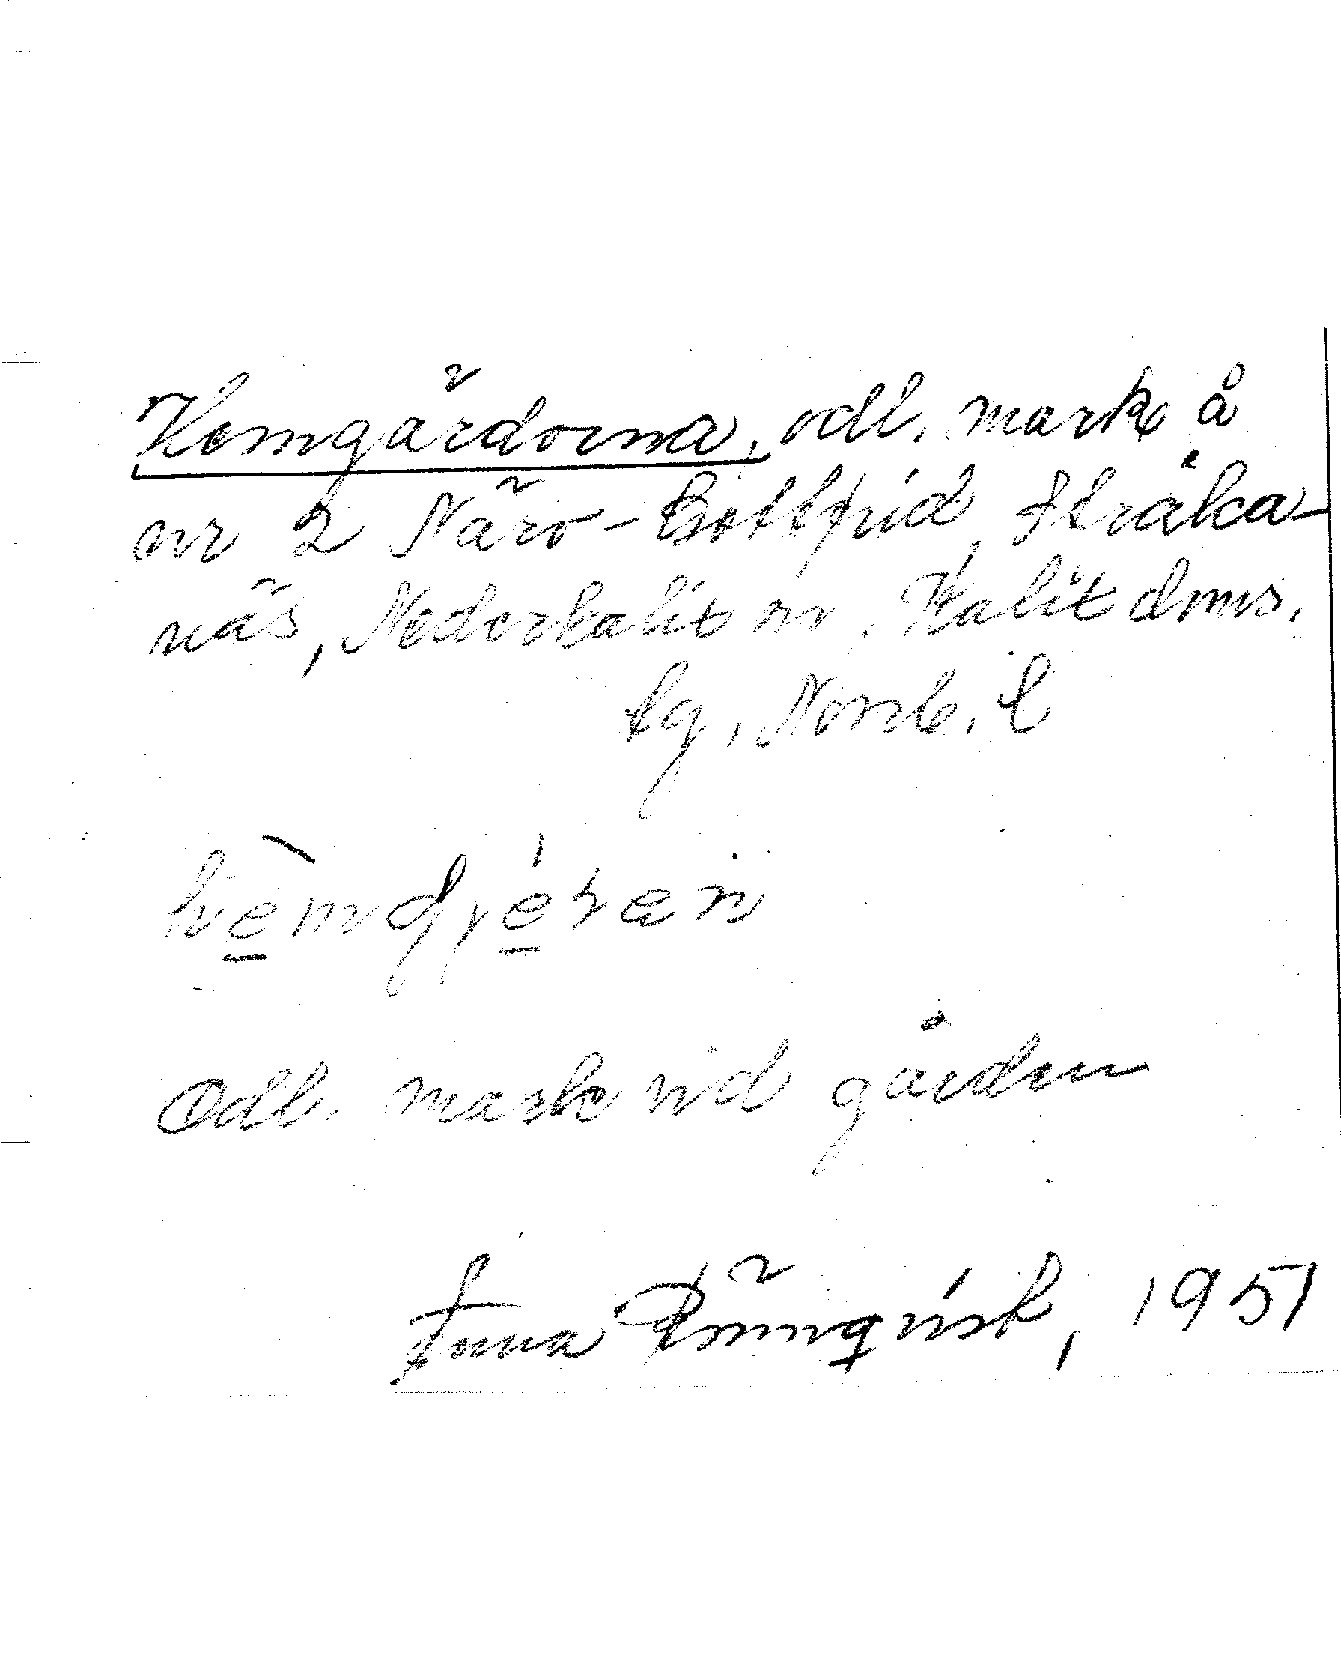 Hemgärdorna, odl. mark å
nr 2 Näro-Bottfrid, Stråka-
näs, Nederkalix sn, Kalix dms.
tg, Norrb. l
hèmdjéran
Odl. mark vid gården
Anna Rönnqvist, 1951